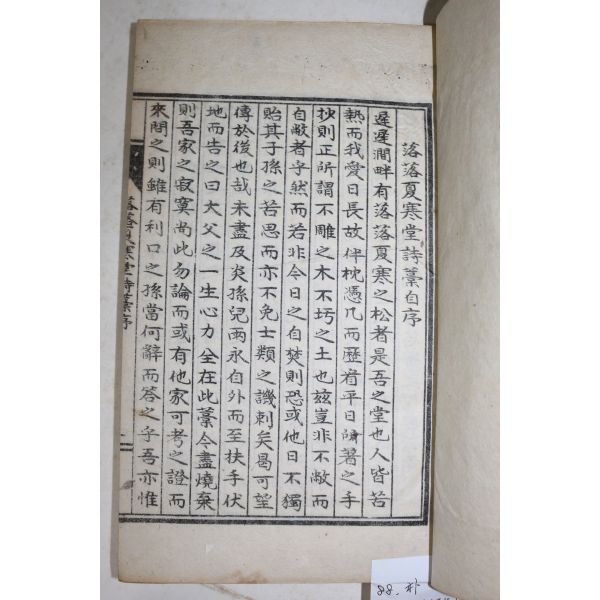 落落夏寒堂詩藁自序
遲遲澗畔有落落夏寒之松者是吾之堂也人皆苦
熱而我愛日長故伴枕憑几而歷看平日所著之手
抄則正所謂不雕之木不圬之土也玆豈非不敝而
自敝者乎然而若非今日之自焚則恐或他日不獨
貽其子孫之苦思而亦不免士類之譏刺矣曷可望
傳於後也哉未盡及炎孫兒兩永自外而至扶手伏
地而告之曰大父之一生心力全在此藁今盡燒棄
則吾家之寂寞尚此勿論而或有他家可考之證而
來問之則雖有利口之孫當何辭而答之乎吾亦惟
落落夏寒堂詩藁序
88.